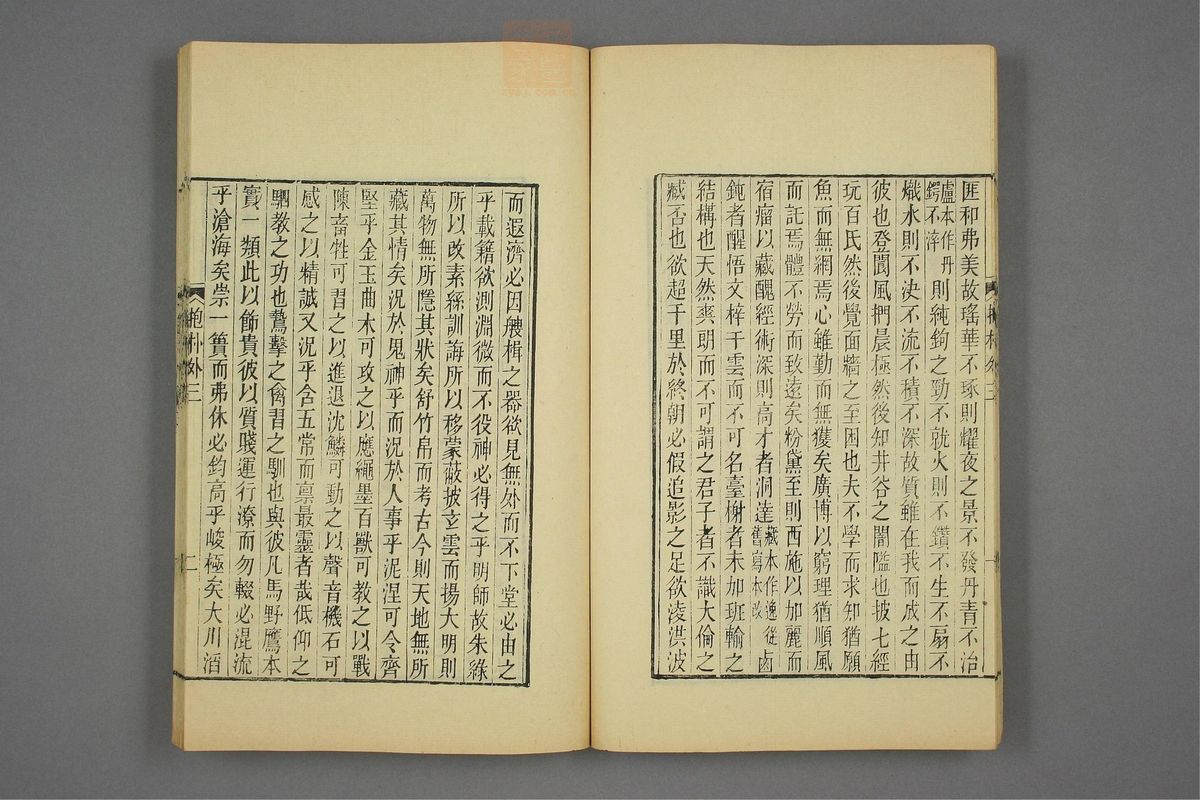 匪和弗美故瑤華不琢則耀夜之景不發丹青不治
盧本作丹鍔不淬則純鉤之勁不就火則不鑽不生不扇不
熾水則不決不流不積不深故質雖在我而成之由
彼也登閬風捫晨極然後知井谷之闇隘也披七經
玩百氏然後覺面牆之至困也夫不學而求知猶願
魚而無網焉心雖勤而無獲矣廣博以窮理猶順風
而託焉體不勞而致遠矣粉黛至則西施以加麗而
宿瘤以藏醜經術深則高才者洞達藏本作逸從舊寫本改鹵
鈍者醒悟文梓干雲而不可名臺榭者未加班輸之
結構也天然爽朗而不可謂之君子者不識大倫之
臧否也欲超千里於終朝必假追影之足欲淩洪波
抱朴外三
一
而遐濟必因艘楫之器欲見無外而不下堂必由之
乎載籍欲測淵微而不役神必得之乎明師故朱綠
所以改素絲訓誨所以移蒙蔽披玄雲而揚大明則
萬物無所隱其狀矣舒竹帛而考古今則天地無所
藏其情矣況於鬼神乎而況於人事乎泥涅可令齊
堅乎金玉曲木可攻之以應繩墨百獸可教之以戰
陳畜牲可習之以進退沈鱗可動之以聲音機石可
感之以精誠又況乎含五常而稟最靈者哉低仰之
駟教之功也鷙擊之禽習之馴也與彼凡馬野鷹本
實一類此以飾貴彼以質賤運行潦而勿輟必混流
乎滄海矣崇一簣而弗休必鈞高乎峻極矣大川滔
抱朴外三
二